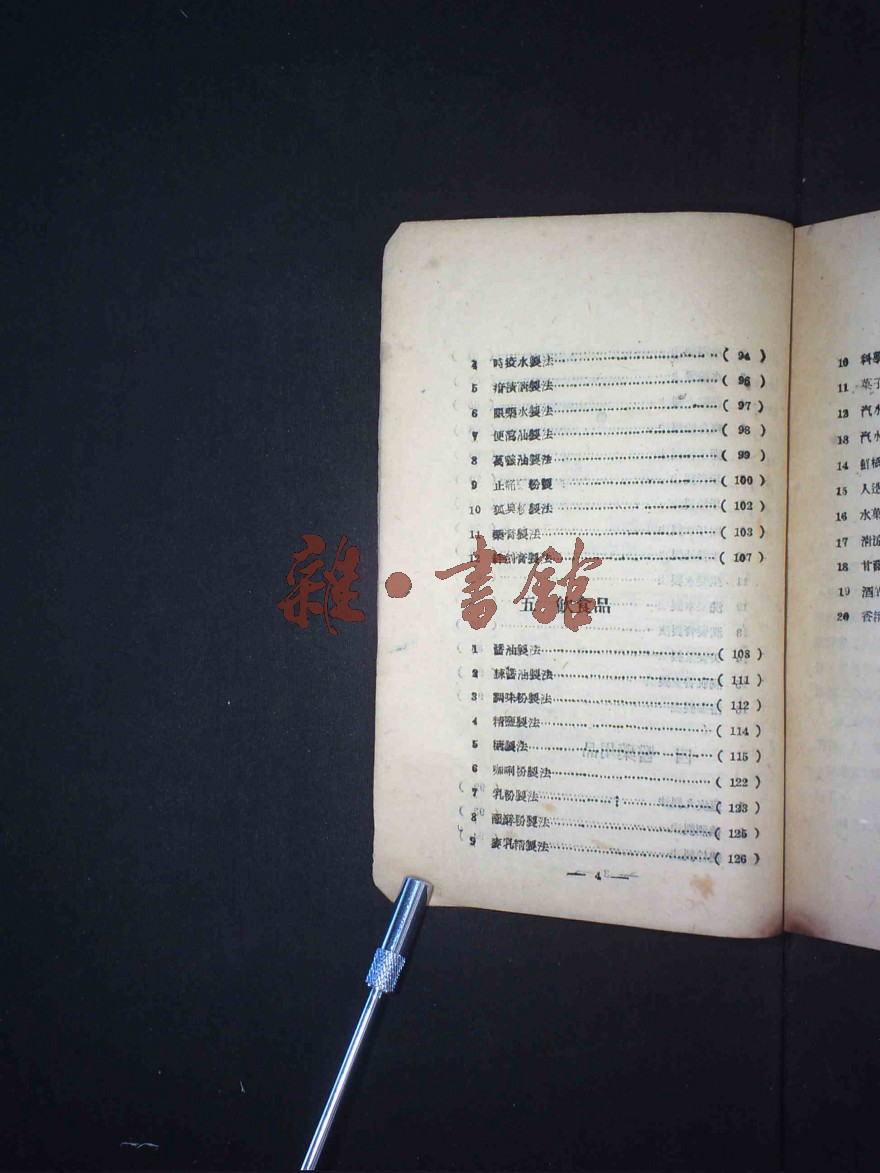 4 時疫水製法 (94)
5 製法 (96)
6 眼藥水製法 (97)
7 便瀉油製法 (98)
8 油製法 (99)
9 止痛 粉製 (100)
10 製法 (102)
11 藥膏製法 (103)
12 創膏製法 (107)
五 飲食品
1 醬油製法 (108)
2 辣醬油製法 (111)
3 調味粉製法 (112)
4 精鹽製法 (114)
5 糖製法 (115)
6 咖喱粉製法 (122)
7 乳粉製法 (123)
8 粉製法 (125)
9 麥乳精製法 (126)
— 4 —
10 科學
11 菓子
12 汽水
13 汽水
14 鮮橘
15 人造
16 水菓
17 清涼
18 甘蔗
19 酒
20 香
雜·書館